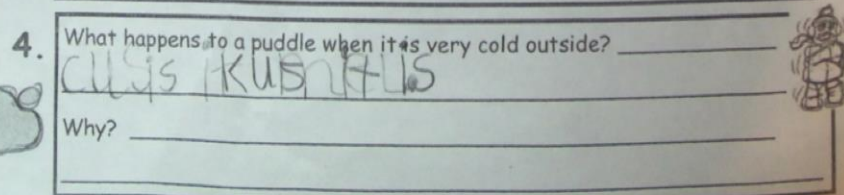 4. What happens to a puddle when it is very cold outside?
Why?